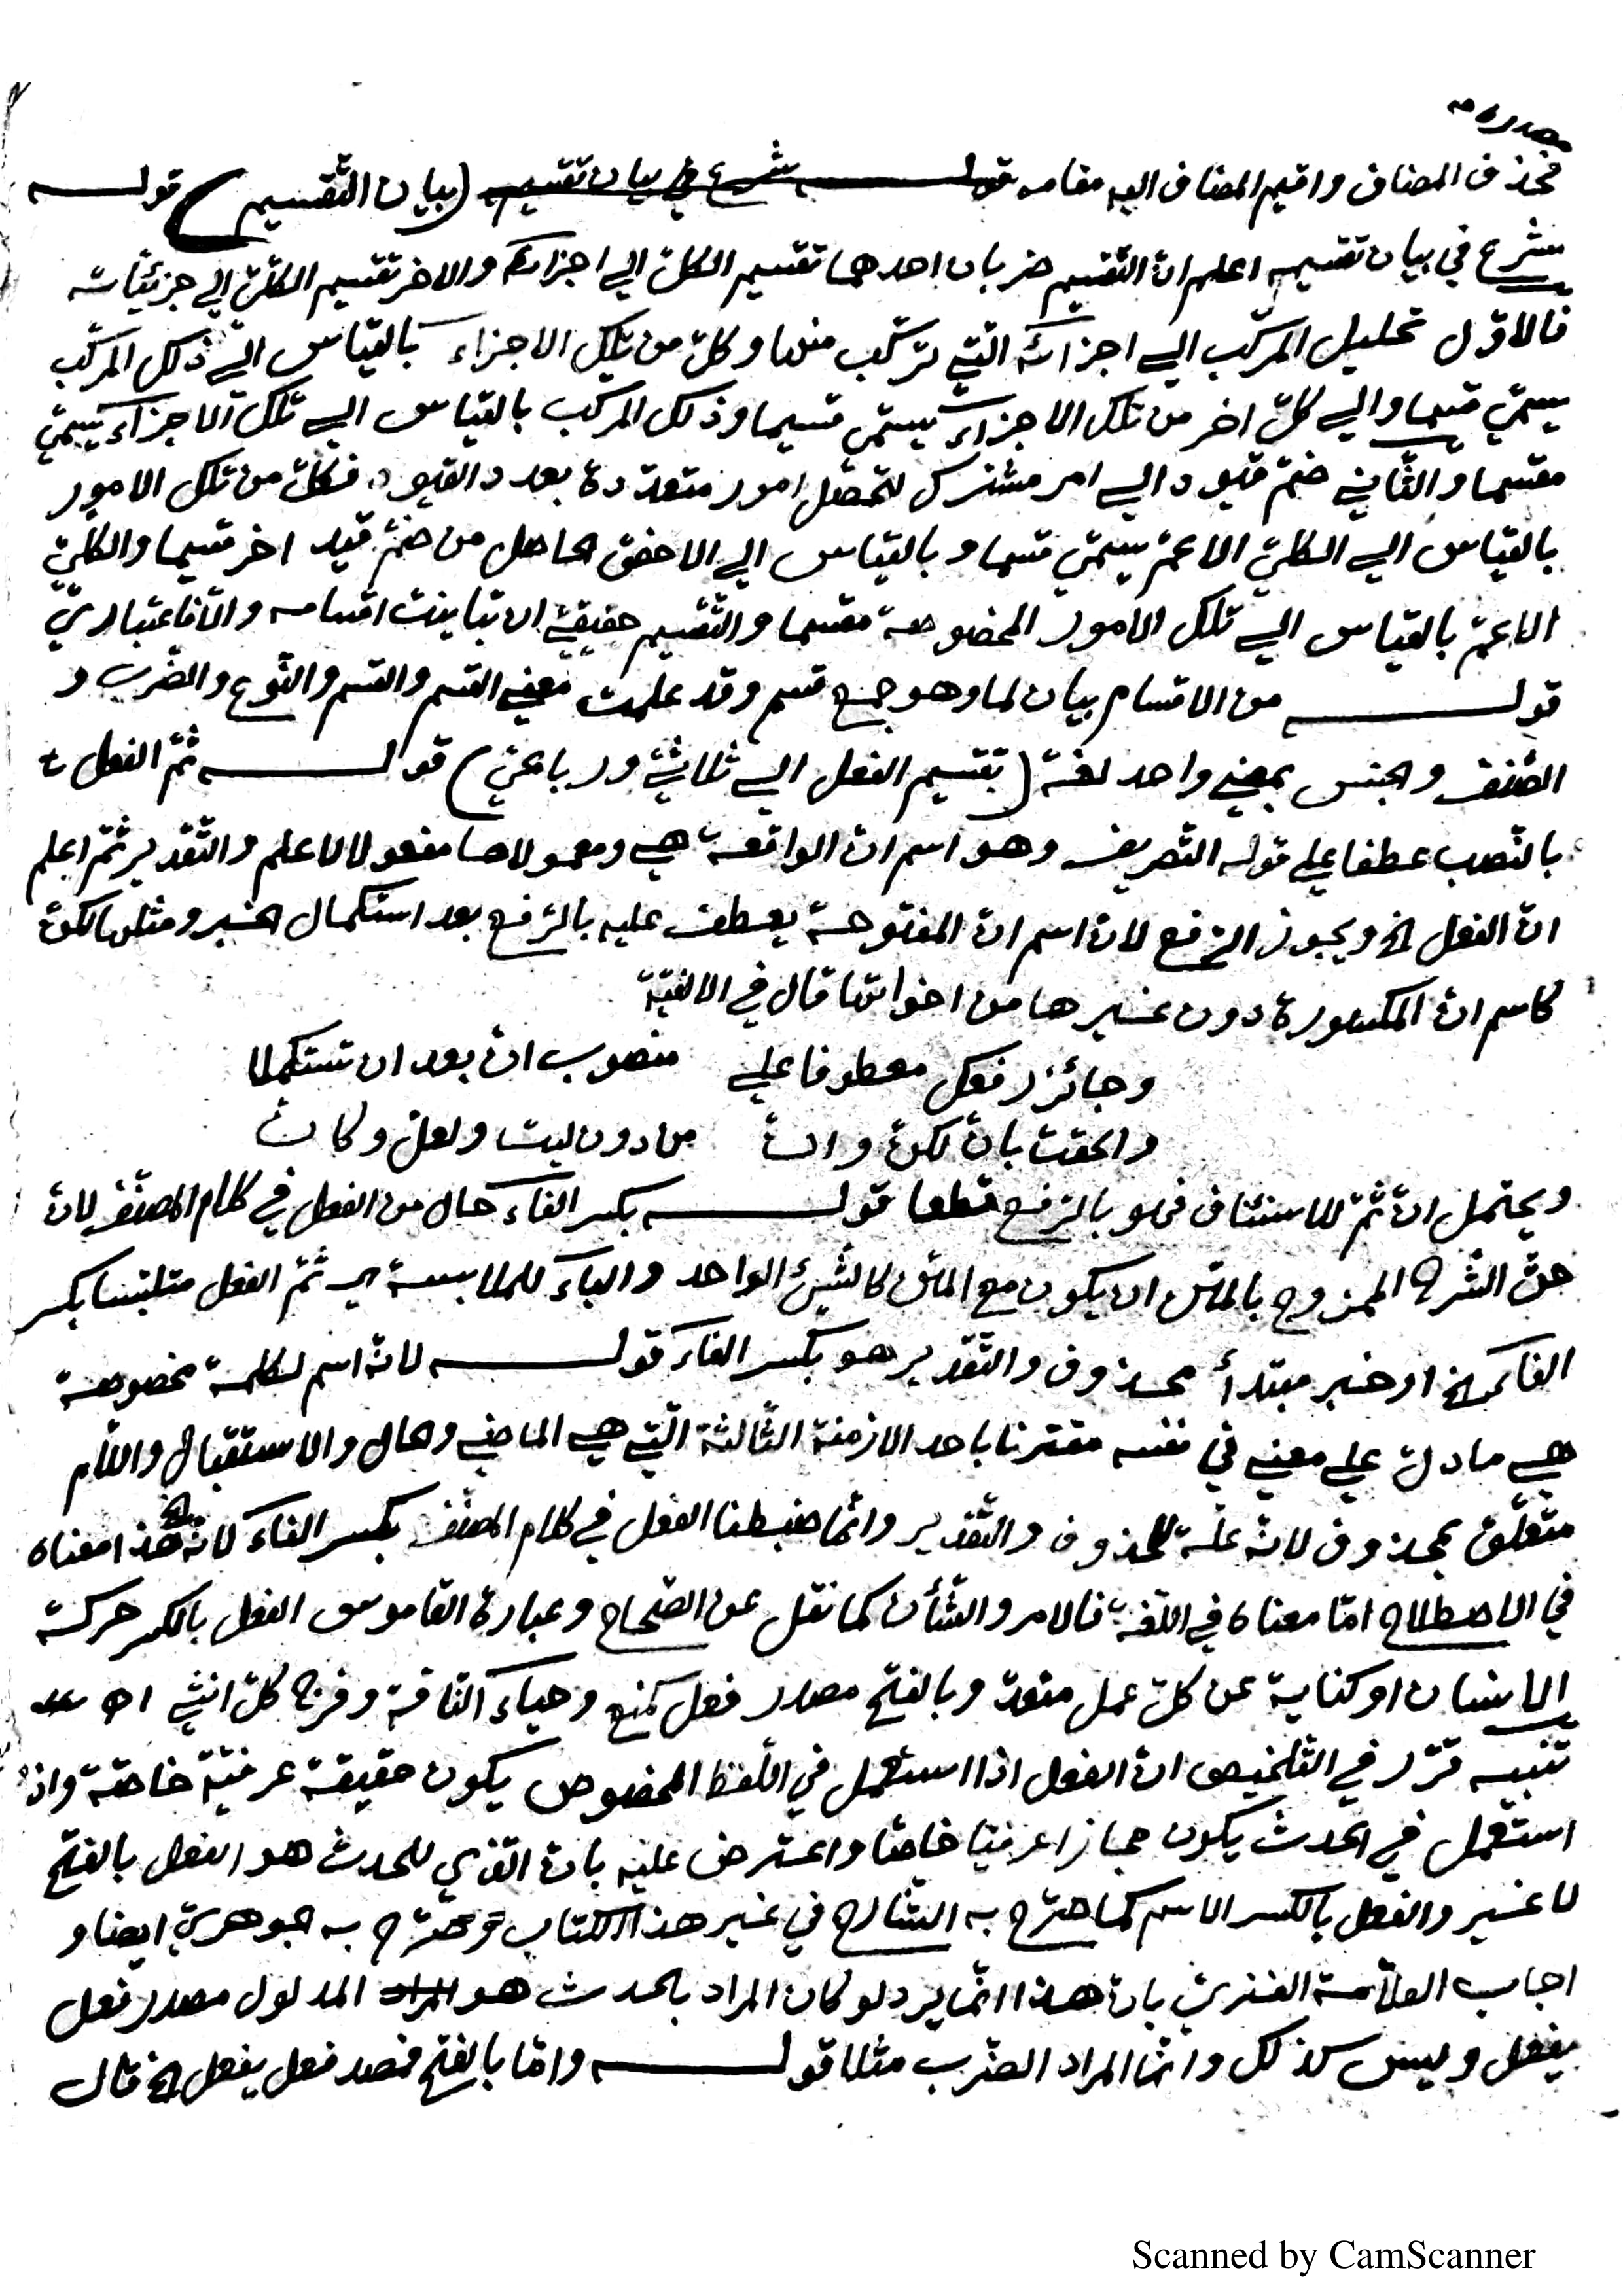 مصدره
فحذف المضاف واقيم المضاف اليه مقامه قولـه شرع في بيان تقسيمه (بيان التقسيم) قولـه
شرع في بيان تقسيمه اعلم انّ التقسيم ضربان احدهما تقسيم الكلّ الي اجزائه والاخر تقسيم الكلّيّ الي جزئيّاته
فالاوّل تحليل المركّب الي اجزائه الّتي تركّب منها وكلّ من تلك الاجزاء بالقياس الي ذلك المركّب
يسمّي قسما والي كلّ اخر من تلك الاجزاء يسمّي قسيما وذلك المركب بالقياس الي تلك الاجزاء يسمّي
مقسما والثّاني ضمّ قيود الي امر مشترك لتحصل امور متعدّدة بعدد القيود فكلّ من تلك الامور
بالقياس الي الكلّيّ الاعمّ يسمّي قسما وبالقياس الي الاخصّ الحاصل من ضمّ قيد اخر قسيما والكلّيّ
الاعمّ بالقياس الي تلك الامور المخصوصة مقسما والتّقسيم حقيقيّ ان تباينت اقسامه والّا فاعتباريّ
قولـه من الاقسام بيان لما وهو جمع قسم وقد علمت معني القسم والقسم والنّوع والضّرب و
الصّنف والجنس بمعني واحد لغة (تقسيم الفعل الي ثلاثيّ ورباعيّ) قولـه ثمّ الفعل
بالنّصب عطفا علي قوله التّصريف وهو اسم انّ الواقعة هي ومعمولاها مفعولا لاعلم والتّقدير ثمّ اعلم
انّ الفعل الخ ويجوز الرّفع لانّ اسم انّ المفتوحة يعطف عليه بالرّفع بعد استكمال الخبر ومثلها لكنّ
كاسم انّ المكسورة دون غيرها من اخواتها قال في الالفيّة
وجائز رفعك معطوفا علي منصوب انّ بعد ان تستكملا
والحقت بانّ لكنّ وانّ من دون ليت ولعلّ وكانّ
ويحتمل انّ ثمّ للاستئناف فهو بالرّفع قطعا قولـه بكسر الفاء حال من الفعل في كلام المصنّف لانّ
حقّ الشّرح الممزوج بالمتن ان يكون مع المتن كالشّيئ الواحد والباء للملابسة اي ثمّ الفعل متلبّسا بكسر
الفاء الخ او خبر مبتدأ محذوف والتّقدير هو بكسر الفاء قولـه لانّه اسم لكلمة مخصوصة
هي ما دلّ علي معني في نفسه مقترنا باحد الازمنة الثّلاثة الّتي هي الماضي والحال والاستقبال واللّام
متعلّق بمحذوف لانّه علّة للمحذوف والتّقدير وانّما ضبطنا الفعل في كلام المصنّف بكسر الفاء لانّه الخ هذا معناه
في الاصطلاح امّا معناه في اللّغة فالامر والشّأن كما نقل عن الصّحاح وعبارة القاموس الفعل بالكسر حركة
الانسان او كناية عن كلّ عمل متعدّ وبالفتح مصدر فعل كمنع وحياء النّاقة وفرج كلّ انثي اه
تنبيه قرّر في التّلخيص انّ الفعل اذا استعمل في اللّفظ المخصوص يكون حقيقة عرفيّة خاصّة واذا
استعمل في الحدث يكون مجازا عرفيّا خاصّا واعترض عليه بانّ الّذي للحدث هو الفعل بالفتح
لا غير والفعل بالكسر الاسم كما صرّح به الشّارح في غير هذا الكتاب وصرّح به جوهريّ ايضا و
اجاب العلّامة الفنريّ بانّ هذا انّما يرد لو كان المراد بالحدث هو المراد المدلول مصدر فعل
يفعل وليس كذلك وانّما المراد الضّرب مثلا قولـه وامّا بالفتح فمصدر فعل يفعل الخ قال
Scanned by CamScanner